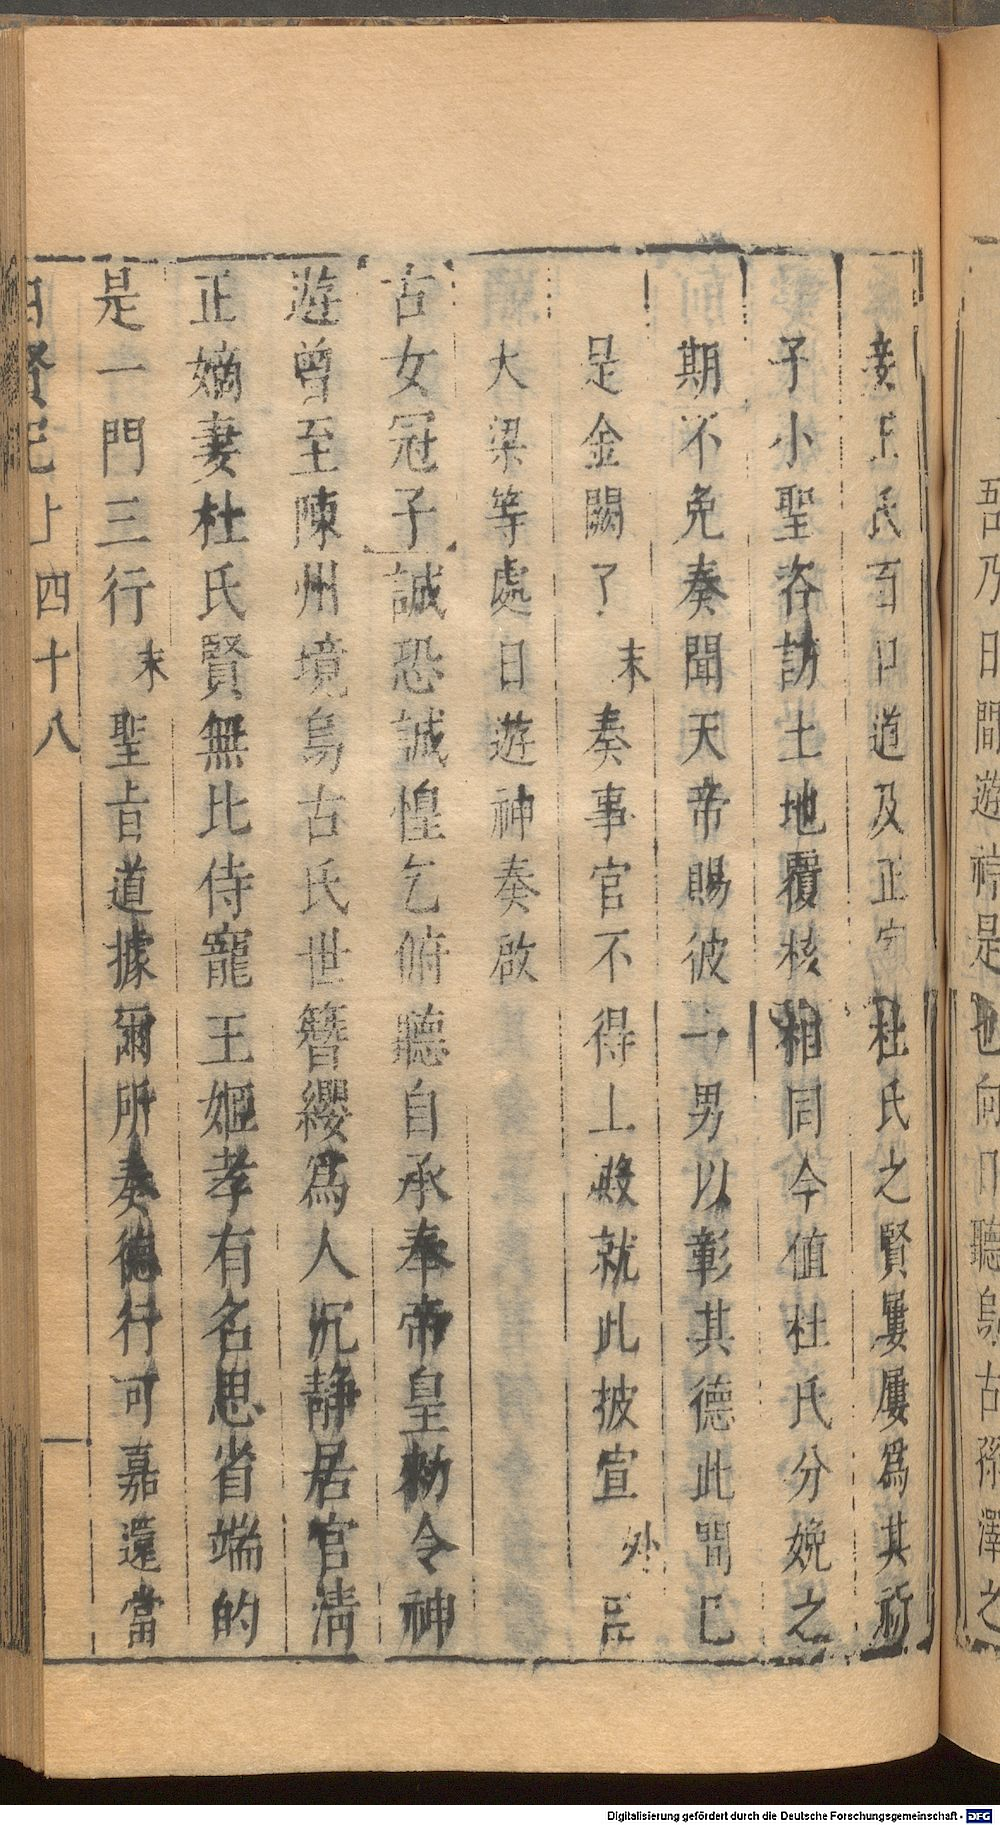 吾乃日間遊神是也向口聽烏古孫澤之
妾王氏百口道及正室杜氏之賢屢屢爲其祈
子小聖咨訪土地覆核相同今值杜氏分娩之
期不免奏聞天帝賜彼一男以彰其德此間已
是金闕了末奏事官不得上殿就此披宣外臣
大梁等處日遊神奏啟
古女冠子誠恐誠惶乞俯聽自承奉帝皇勑令神
遊曾至陳州境烏古氏世簪纓爲人沉靜居官淸
正嫡妻杜氏賢無比侍寵王姬孝有名思省端的
是一門三行末聖旨道據爾所奏德行可嘉還當
四賢記上四十八
Digitalisierung gefördert durch die Deutsche Forschungsgemeinschaft - DFG